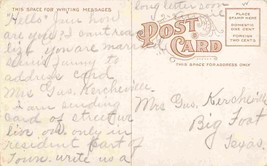 THIS SPACE FOR WRITING MESSAGES
long letter soon
"Hello" Jim how
are you? I can't realize
yet you are married
seems funny to
address card
Mrs Gus. Kercheim
I am sending
card of street we
live on. only in
resident part of
Town. write us a
POST CARD
THIS SPACE FOR ADDRESS ONLY
PLACE
STAMP HERE
DOMESTIC
ONE CENT
FOREIGN
TWO CENTS
Mrs Gus. Kersheim
Big Foot
Texas.